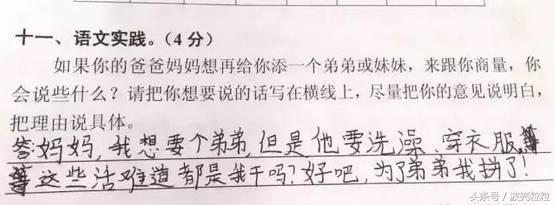 十一、语文实践。(4分)
如果你的爸爸妈妈想再给你添一个弟弟或妹妹，来跟你商量，你
会说些什么？请把你想要说的话写在横线上，尽量把你的意见说明白，
把理由说具体。
答妈妈，我想要个弟弟，但是他要洗澡、穿衣服，等
等这些活难道都是我干吗？好吧，为了弟弟我拼了！
头条号 / 波壳粒粒